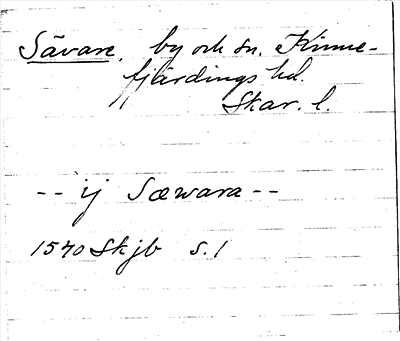 Sävare, by och sn. Kinne-
fjärdings hd.
Skar. l.
-- ij Sæwara --
1540 Skjb s. 1